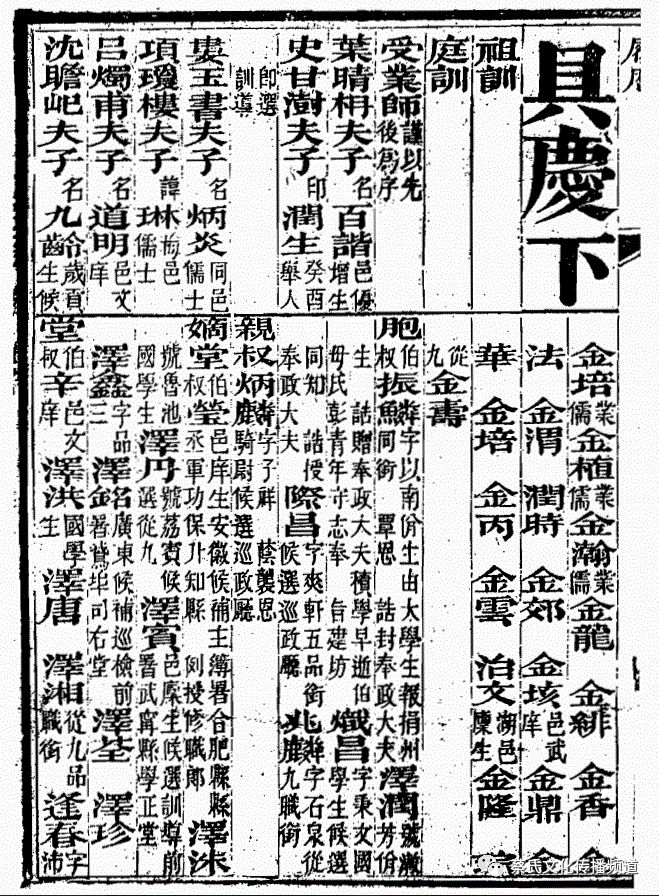 具慶下
祖訓
庭訓
受業師謹以先後爲序
葉晴枏夫子名百諧邑優增生
史甘澍夫子印潤生癸酉舉人
即選訓導
婁玉書夫子名炳炎同邑儒士
項瓊樓夫子諱琳梅邑儒士
呂燭甫夫子名道明邑文庠
沈瞻屺夫子名九齡歲貢生候
金培業儒 金植業儒 金瀚業儒 金龍 金緋 金香 金
法 金渭 潤時 金郊 金垓邑武庠 金鼎 金
華 金培 金丙 金雲 治文湖邑廩生 金隆
從九 金壽
胞伯叔振鱗字以南附生由大學生報捐州同銜 覃恩 誥封奉政大夫 澤潤號澈芳附
生 誥贈奉政大夫積學早逝伯母氏彭青年守志奉 旨建坊 熾昌字秉文國學生候選
同知 誥授奉政大夫 際昌字爽軒五品銜候選巡政廳 兆麟字石泉從九職銜
親叔炳麟字子祥 蔭襲恩騎尉候選巡政廳
嫡堂伯叔瑩邑庠生安徽候補主簿署合肥縣縣丞軍功保升知縣 例授修職郎 澤洙
號魯池國學生 澤丹號荔賓候選從九 澤賓邑廩生候選訓導前署武寧縣學正堂
澤鑫字品三 澤銘廣東候補巡檢前署埠司右堂 澤荃 澤珍
堂伯叔辛邑文庠 澤洪國學生 澤唐 澤湘從九品職銜 逢春字沛
蔡氏文化传播频道